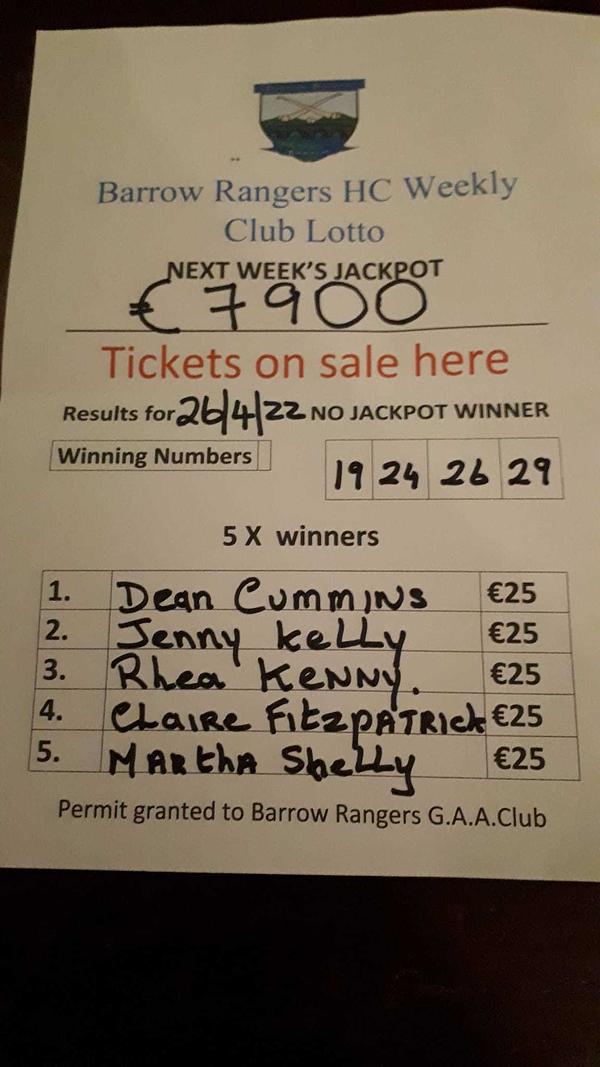 Barrow Rangers HC Weekly
Club Lotto
NEXT WEEK'S JACKPOT
€7900
Tickets on sale here
Results for 26/4/22 NO JACKPOT WINNER
Winning Numbers 19 24 26 29
5 X winners
1. Dean Cummins €25
2. Jenny Kelly €25
3. Rhea Kenny. €25
4. Claire Fitzpatrick €25
5. Martha Shelly €25
Permit granted to Barrow Rangers G.A.A.Club